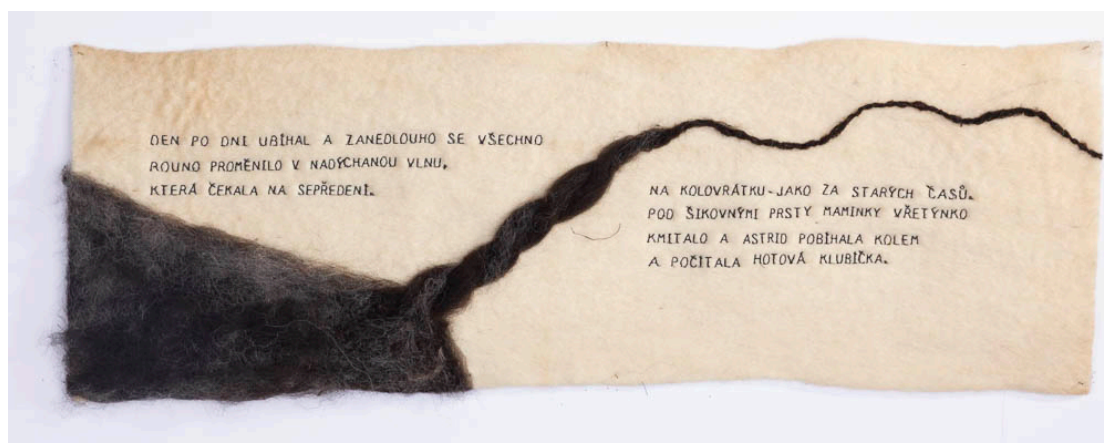 DEN PO DNI UBÍHAL A ZANEDLOUHO SE VŠECHNO
ROUNO PROMĚNILO V NADÝCHANOU VLNU,
KTERÁ ČEKALA NA SEPŘEDENÍ.
NA KOLOVRÁTKU-JAKO ZA STARÝCH ČASŮ.
POD ŠIKOVNÝMI PRSTY MAMINKY VŘETÝNKO
KMITALO A ASTRID POBÍHALA KOLEM
A POČÍTALA HOTOVÁ KLUBÍČKA.